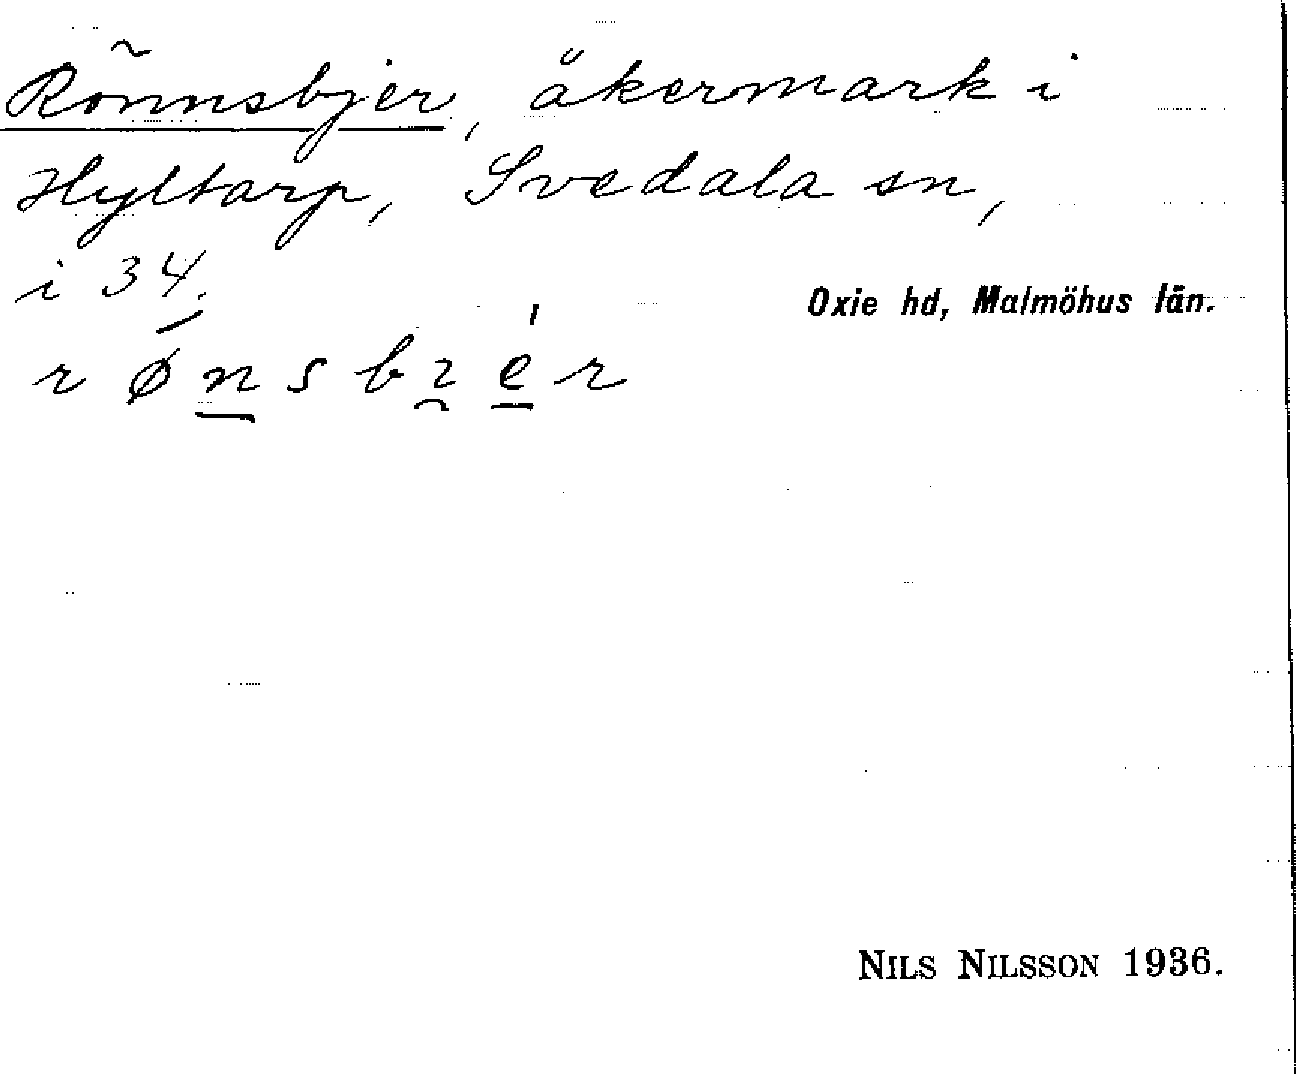 Rönnsbjer, åkermark i
Hyltarp, Svedala sn,
i 34.
Oxie hd, Malmöhus län.
rǿnsbɪ̯ér
NILS NILSSON 1936.